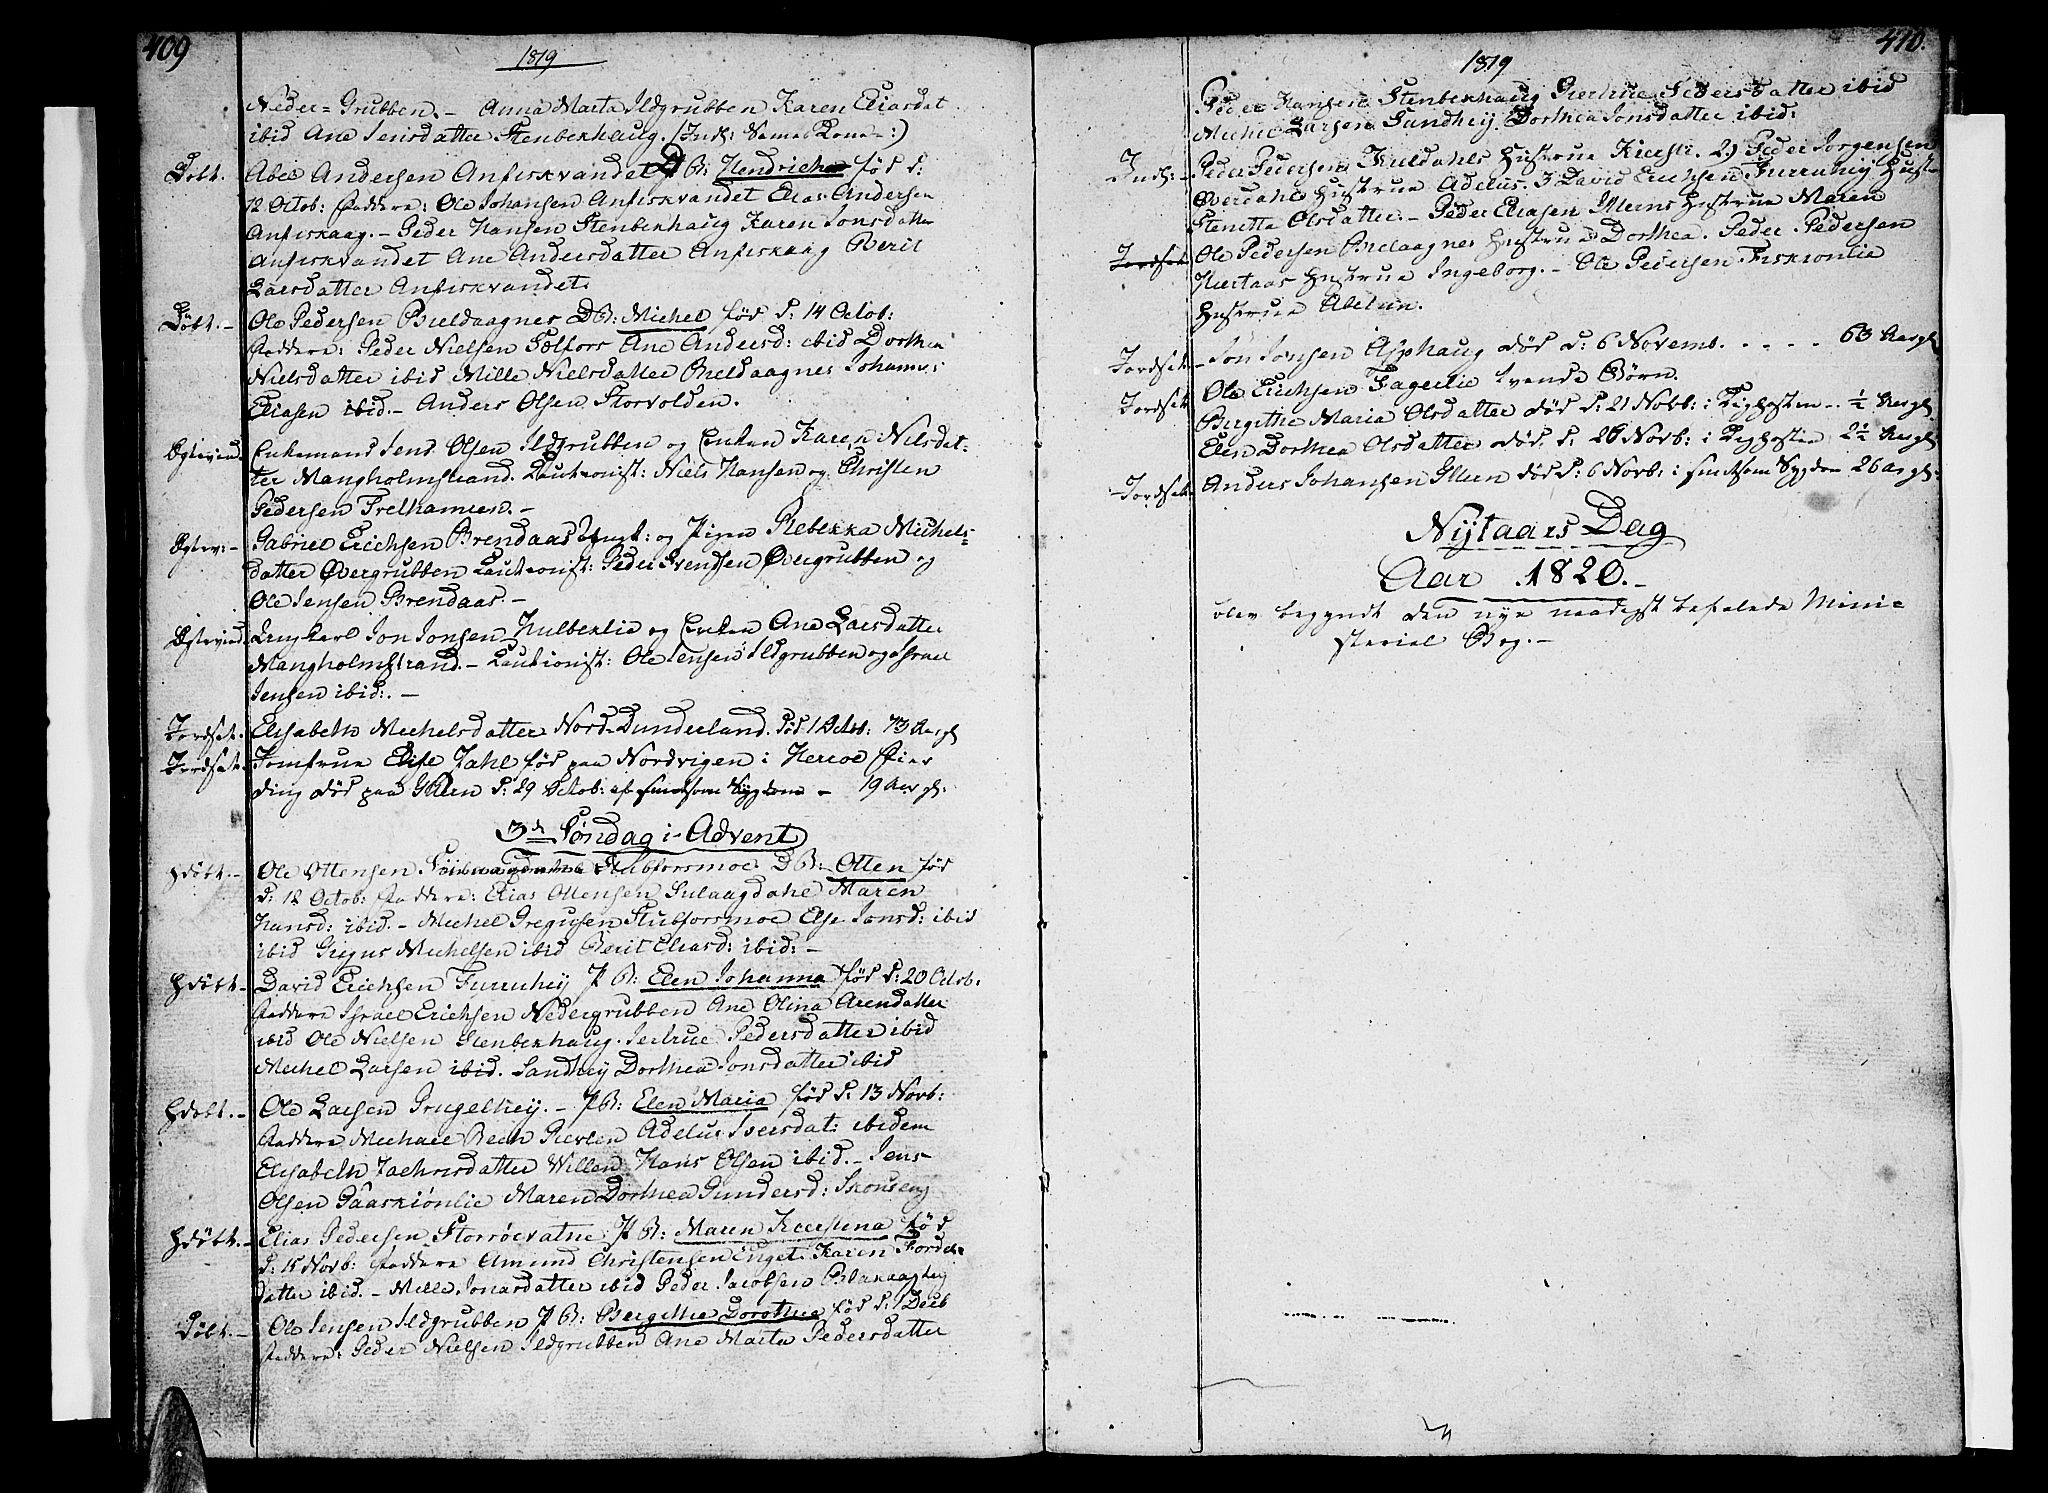 409
1819
Neder=Grubben. – Anna Marta Ildgrubben Karen Eliasdat
ibid Ane Jensdatter Stenbekhaug. (Inds: samme Kone –:)
Døbt. Abel Andersen Anfiskvandet P B: Hendricha fød d:
12 Octob: Faddere: Ole Johansen Anfiskvandet Elias Andersen
Anfiskaag. – Peder Hansen Stenbekhaug Karen Jonsdatter
Anfiskvandet Ane Andersdatter Anfiskaag Berit
Larsdatter Anfiskvandet
Døbt. – Ole Pedersen Bieldaagnes D B: Michel fød d: 14 Octob:
Faddere: Peder Nielsen Selfors Ane Andersd: ibid Dorthea
Nielsdatter ibid Mille Nielsdatter Bieldaagnes Johannes
Eliasen ibid. – Anders Olsen Storvolden.
Ægtevied Enkemand Jens Olsen Ildgrubben og Enken Karen Nilsdat-
ter Mangholmstrand. Cautionist: Niels Hansen og Christen
Pedersen Trelhamren. –
Ægtev: – Gabriel Erichsen Brendaas Ungk: og Pigen Rebekka Michels=
datter Øvergrubben Cautionist: Peder Svendsen Øvergrubben og
Ole Jensen Brendaas. –
Ægtevied Ungkarl Jon Jonsen Hulbeklie og Enken Ane Larsdatter
Mangholmstrand. – Cautionist: Ole Jensen Ildgrubben og Israel
Jensen ibid:. –
Jordsat. Elisabeth Michelsdatter Nord-Dunderland. død 1 Octob: 73 Aar gl
Jordsat. Jomfrue Else Zahl fød paa Nordvigen i Herøe Fier
ding død paa Yttern d: 29 Octob: af smitsom Sygdom – 19 Aar gl:
3de Søndag i Advent
Hdøbt. – Ole Ottensen Stubforsmoe D B: Otten fød
d: 12 Octob: Faddere: Elias Ottensen Sulaagdahl Maren
Hansd: ibid. – Michel Gregusen Stubforsmoe Else Jonsd: ibid
ibid Gregus Michelsen ibid Berit Eliasd: ibid: –
Hdøbt – David Erichsen Furruhey P B: Elen Johanna fød d: 20 Octob:
Faddere Israel Erichsen Nedergrubben Ane Olina Arendatter
ibid Ole Nielsen Stenbekhaug. Jertrue Pedersdatter ibid
Michel Larsen ibid. Sandhey Dorthea Jonsdatter ibid
Hdøbt. – Ole Larsen Grugelhey. – P B: Elen Maria fød d: 13 Novb:
Faddere Michael Bech Revlen Adelus Iversdat: ibidem
Elisabeth Zachrisdatter Willen Hans Olsen ibid. – Jens
Olsen Gaaskiønlie Maren Dorthea Gundersd: Skonseng
Hdøbt. – Elias Pedersen Storrøevatne P B: Maren Kierstina fød
d: 15 Novb: Faddere Amund Christensen Enget Karen Tordes
datter ibid. – Mille Jonasdatter ibid Peder Jacobsen Blakaaghey
Døbt. – Ole Jensen Ildgrubben P B: Bergithe Dorothea fød d: 1 Decb
Faddere: Peder Nielsen Ildgrubben Ane Marta Pedersdatter
410.
1819
Peder Hansen Stenbekhaug Giertrue Pedersdatter ibid
Michel Larsen Sandhey Dorthea Jonsdatter ibid:
Inds: – Peder Pedersen Kieldahls Hustrue Kiersti. 2) Peder Jørgensen
Øverdahls Hustrue Adelus. 3 David Erichsen Furruhey Hust-
Stenetta Olsdatter. – Peder Eliasen Ytterns Hustrue Maren
Jordsat Ole Pedersen Bielaagnes Hustrue Dorthea. Peder Pedersen
Hiertaas Hustrue Ingeborg. – Ole Pedersen Fiskiønlie
Hustrue Abelun.
Jordsat – Jon Jonsen Asphaug død d: 6 Novemb. . . . . . 63 Aar gl.
Jordsat Ole Erichsen Fagerlie tvende Børn.
Bergithe Maria Olsdatter død d: 21 Novb: i Kighosten – ½ Aar gl
Elen Dorthea Olsdatter død d: 26 Novb: i Kighosten 2½ Aar gl
Jordsat – Anders Johansen Yttern død d: 6 Novb: i smitsom Sygdom 26 ar gl:
Nÿtaars Dag
Aar 1820. –
blev begyndt den nye naadigst befalede Mini=
sterial Bog. –